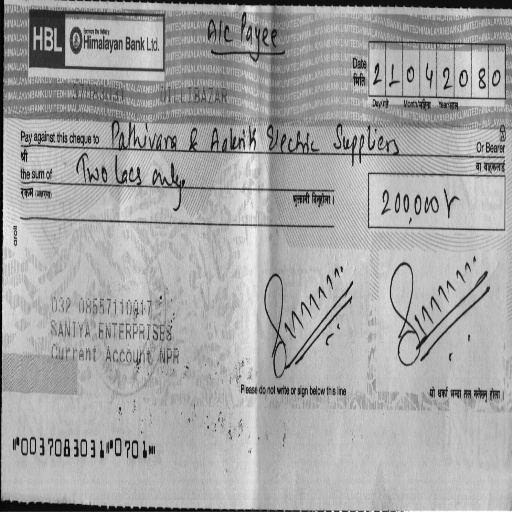 HBL Himalayan Bank Ltd.
A/c Payee
Date 21042080
मिति
Day/गते Month/महिना Year/साल
BAZAR
Pay against this cheque to Pathivara & Aakriti Electric Suppliers Or Bearer
श्री वा वाहकलाई
the sum of Two lacs only
रकम (अक्षरमा)
200,000/-
032 08557110817
SANIYA ENTERPRISES
Current Account NPR
Please do not write or sign below this line
"0037083031"0701"